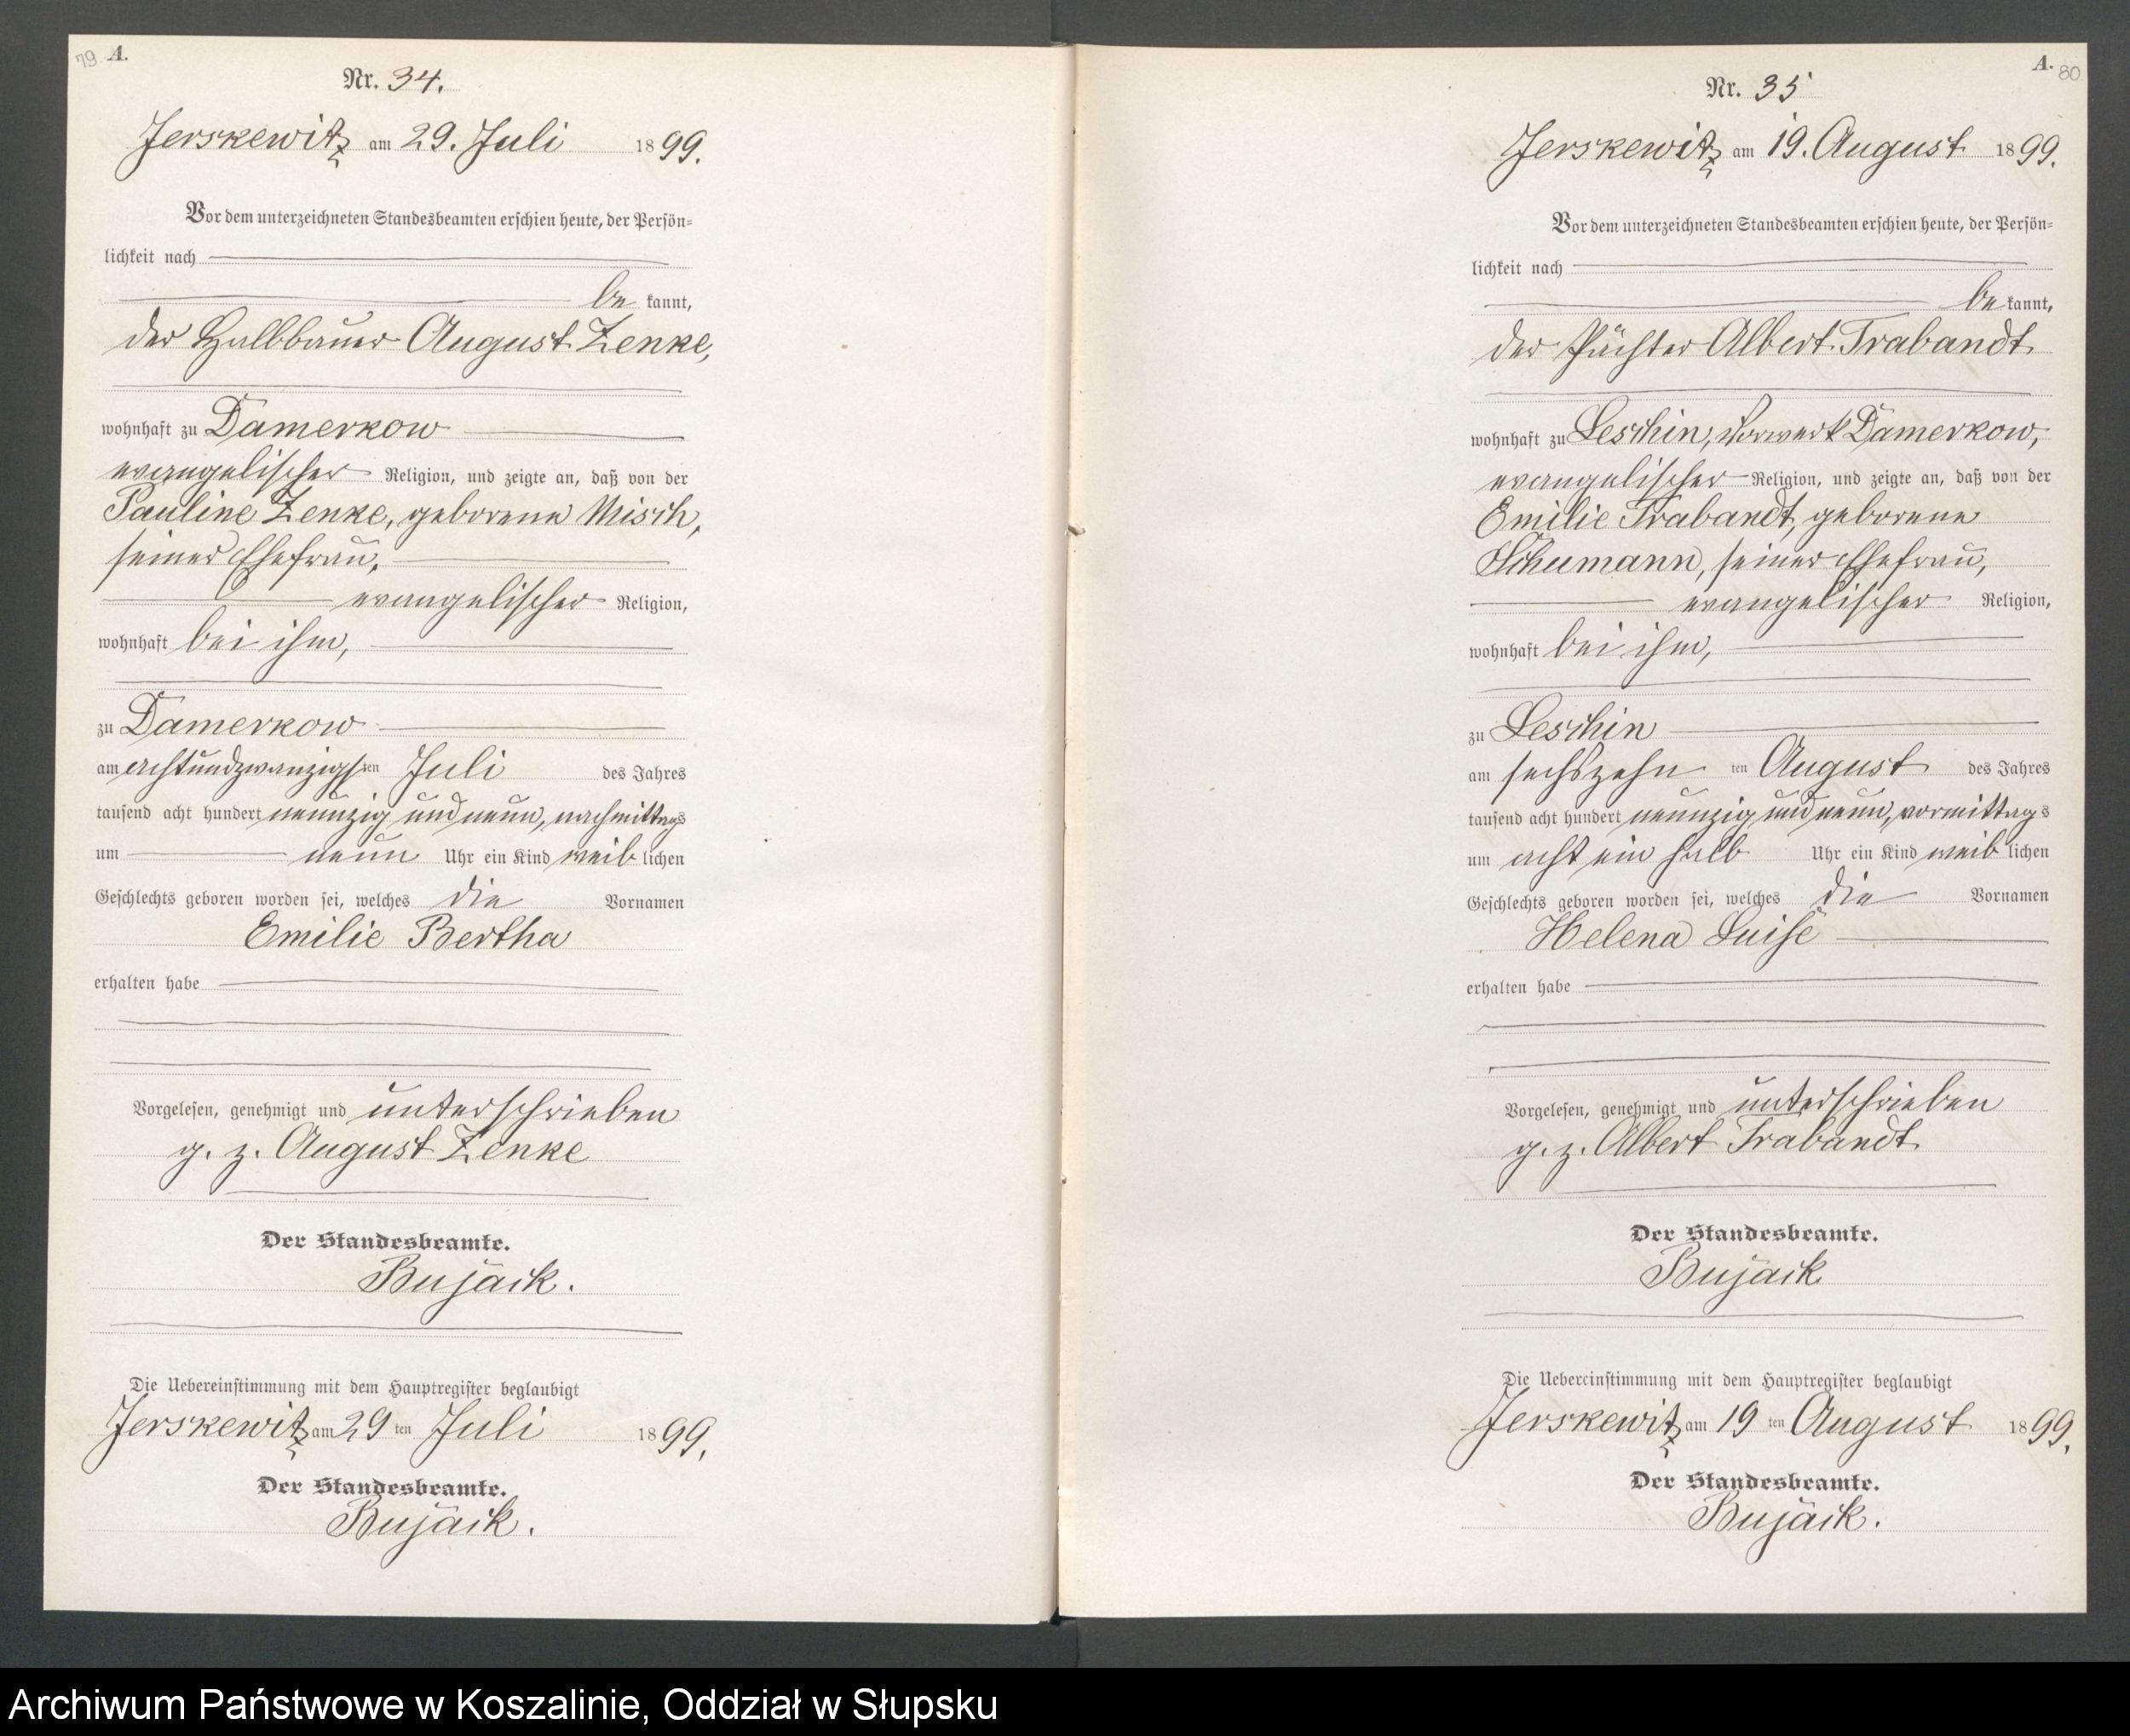 79 A.
Nr. 34.
Jerskewitz am 29. Juli 1899.
Vor dem unterzeichneten Standesbeamten erschien heute, der Persön-
lichkeit nach
be kannt,
der Halbbauer August Zenke,
wohnhaft zu Damerkow
evangelischer Religion, und zeigte an, daß von der
Pauline Zenke, geborene Misch,
seiner Ehefrau,
evangelischer Religion,
wohnhaft bei ihm,
zu Damerkow
am achtundzwanzigsten Juli des Jahres
tausend acht hundert neunzig und neun, nachmittags
um neun Uhr ein Kind weiblichen
Geschlechts geboren worden sei, welches die Vornamen
Emilie Bertha
erhalten habe
Vorgelesen, genehmigt und unterschrieben
g. z. August Zenke
Der Standesbeamte.
Bujack.
Die Uebereinstimmung mit dem Hauptregister beglaubigt
Jerskewitz am 29 ten Juli 1899.
Der Standesbeamte.
Bujack.
A. 80
Nr. 35
Jerskewitz am 19. August 1899.
Vor dem unterzeichneten Standesbeamten erschien heute, der Persön-
lichkeit nach
be kannt,
der Pächter Albert Trabandt
wohnhaft zu Leschin, Vorwerk Damerkow,
evangelischer Religion, und zeigte an, daß von der
Emilie Trabandt, geborene
Schumann, seiner Ehefrau,
evangelischer Religion,
wohnhaft bei ihm,
zu Leschin
am sechszehn ten August des Jahres
tausend acht hundert neunzig und neun, vormittags
um acht ein halb Uhr ein Kind weiblichen
Geschlechts geboren worden sei, welches die Vornamen
Helena Luise
erhalten habe
Vorgelesen, genehmigt und unterschrieben
g. z. Albert Trabandt
Der Standesbeamte.
Bujack
Die Uebereinstimmung mit dem Hauptregister beglaubigt
Jerskewitz am 19 ten August 1899.
Der Standesbeamte.
Bujack.
Archiwum Państwowe w Koszalinie, Oddział w Słupsku